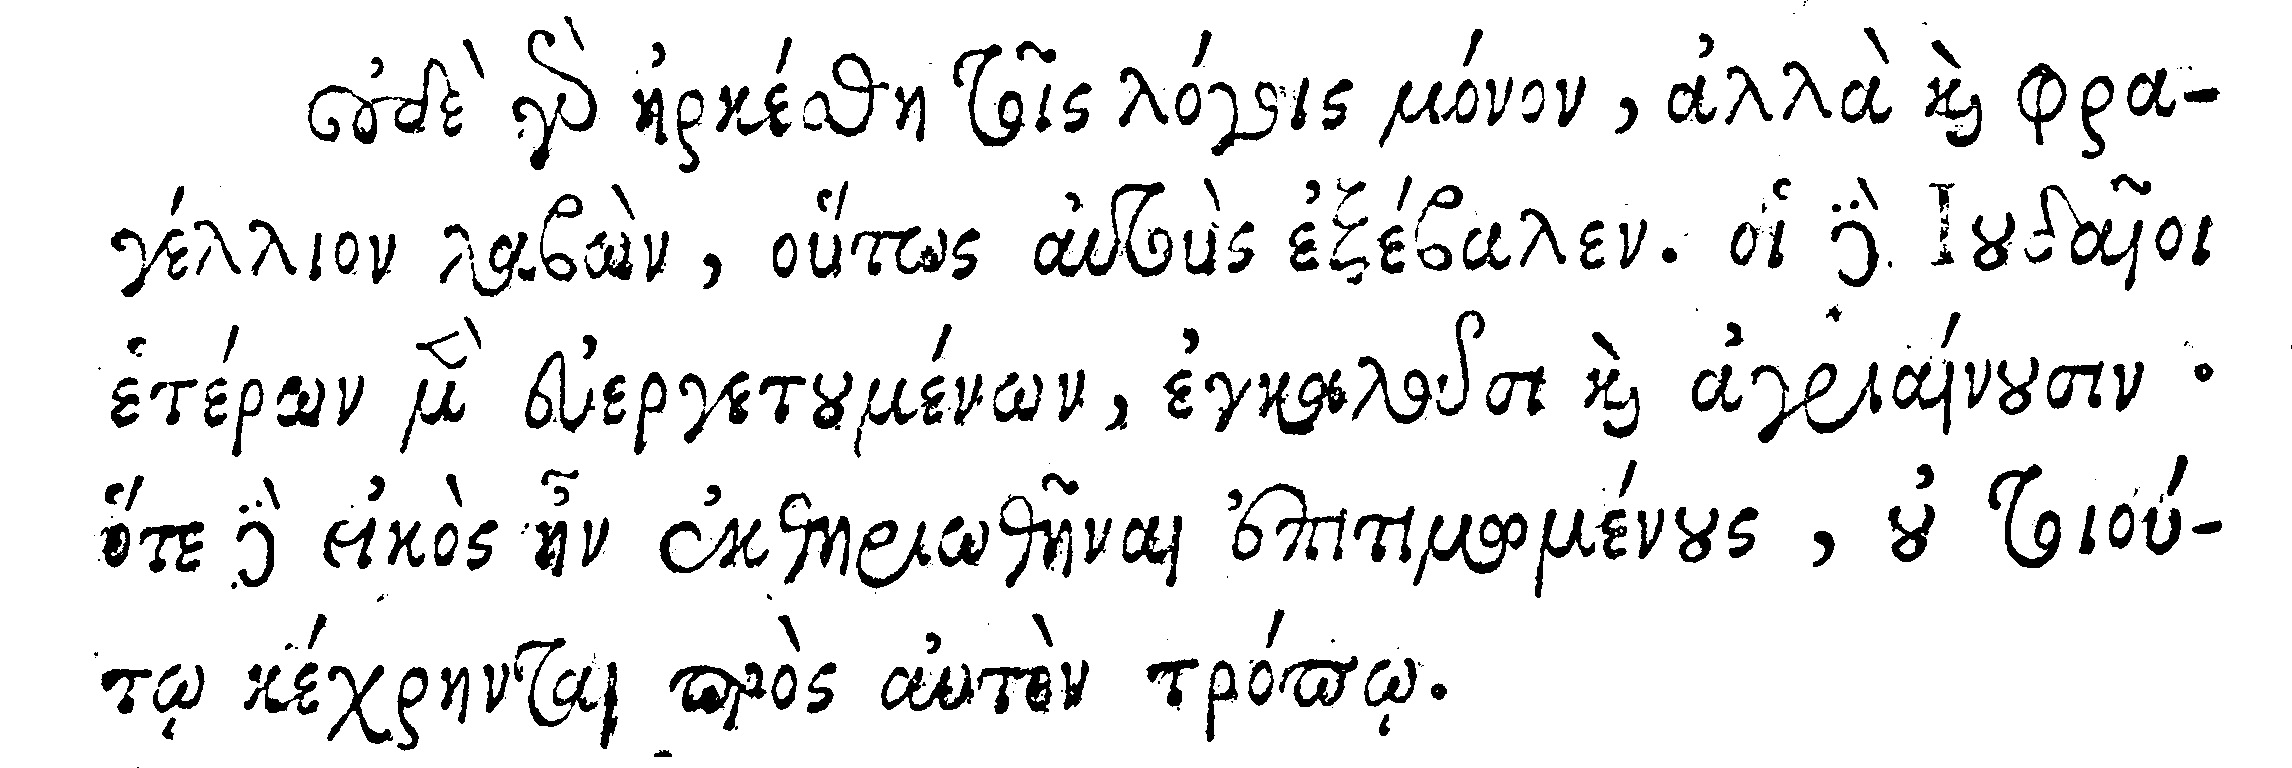 οὐδὲ γὰρ ἠρκέσθη τοῖς λόγοις μόνον, ἀλλὰ καὶ φρα-
γέλλιον λαβὼν, οὕτως αὐτοὺς ἐξέβαλεν. οἱ δὲ Ἰουδαῖοι
ἑτέρων μὲν εὐεργετουμένων, ἐγκαλοῦσι καὶ ἀγριαίνουσιν·
ὅτε δὲ εἰκὸς ἦν ἐκθηριωθῆναι ἐπιτιμωμένους, οὐ τοιού-
τῳ κέχρηνται πρὸς αὐτὸν τρόπῳ.